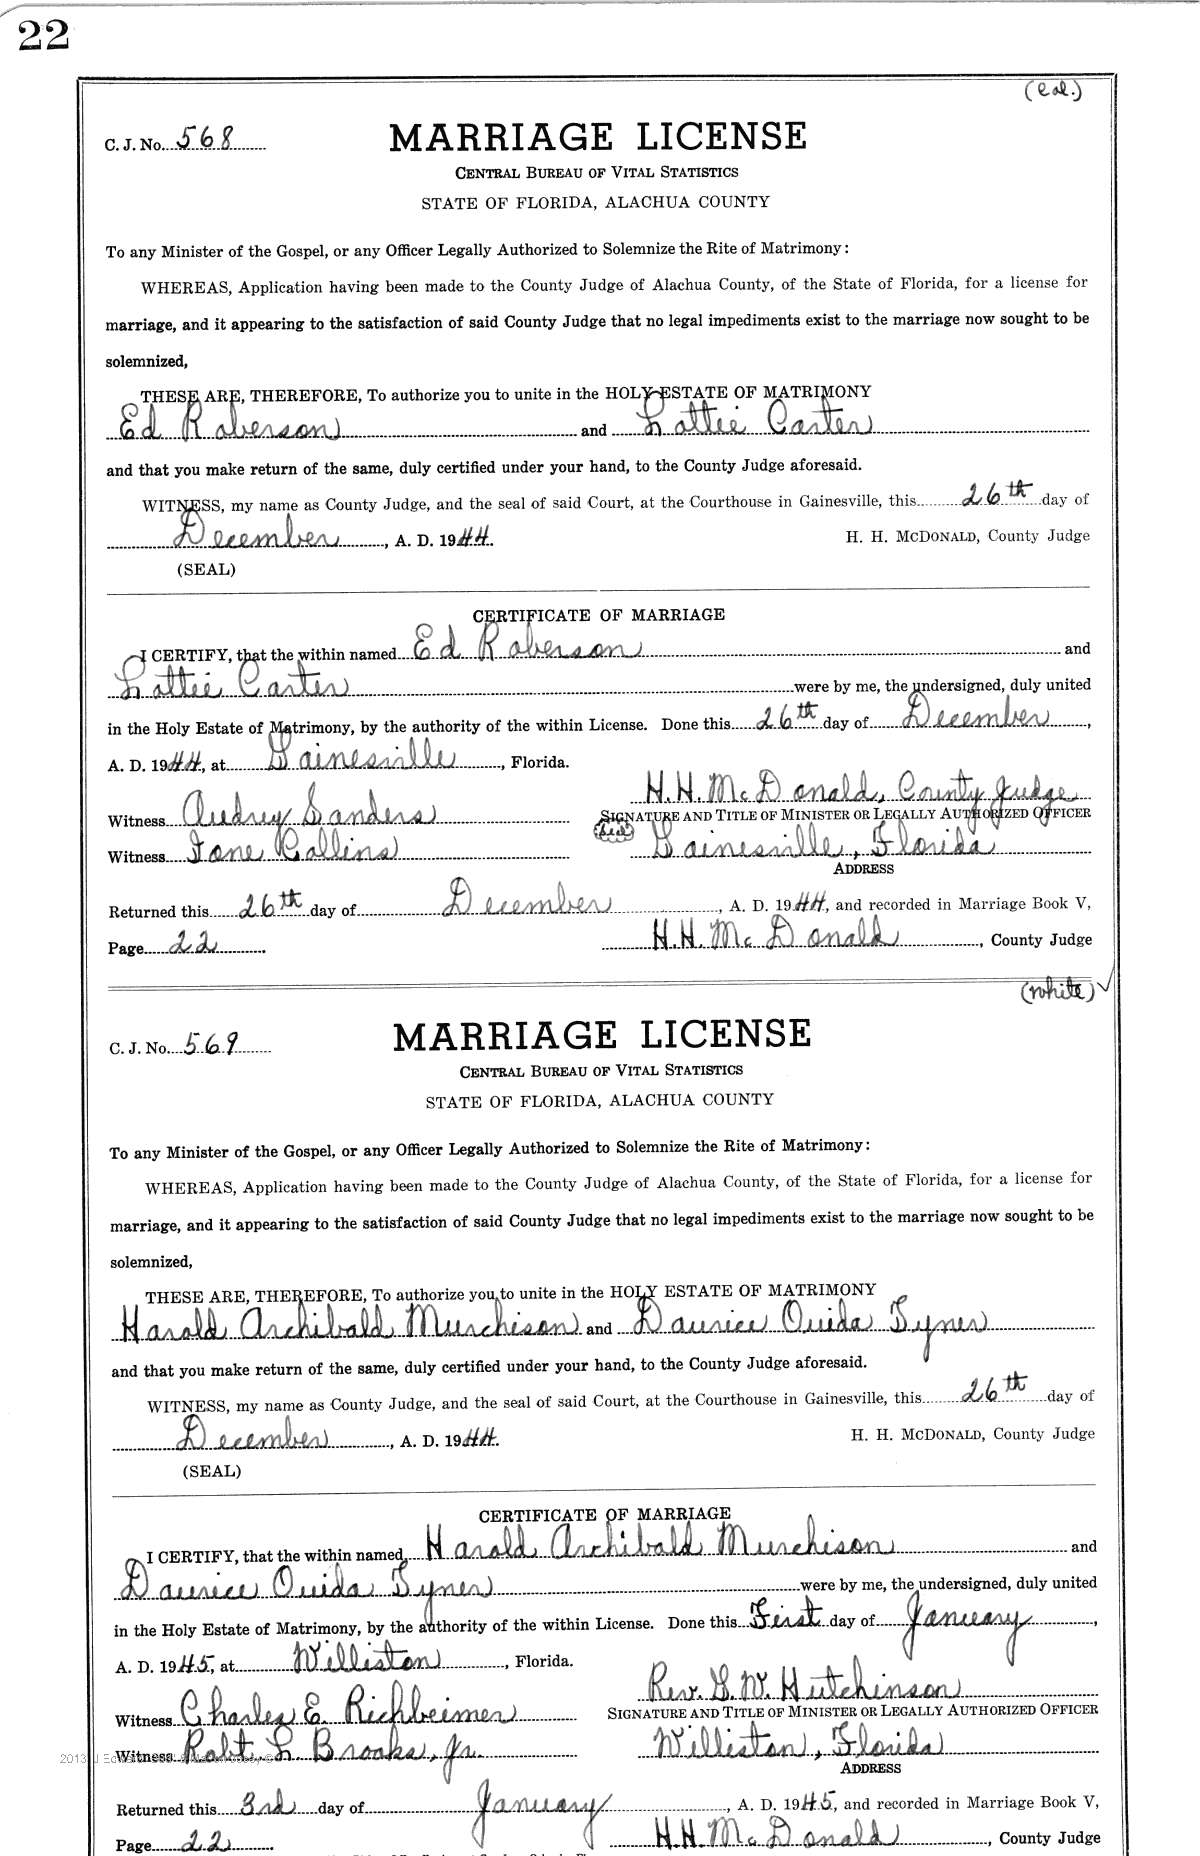 22
(Col.)
C. J. No. 568
MARRIAGE LICENSE
CENTRAL BUREAU OF VITAL STATISTICS
STATE OF FLORIDA, ALACHUA COUNTY
To any Minister of the Gospel, or any Officer Legally Authorized to Solemnize the Rite of Matrimony:
WHEREAS, Application having been made to the County Judge of Alachua County, of the State of Florida, for a license for
marriage, and it appearing to the satisfaction of said County Judge that no legal impediments exist to the marriage now sought to be
solemnized,
THESE ARE, THEREFORE, To authorize you to unite in the HOLY ESTATE OF MATRIMONY
Ed Roberson and Lottie Carter
and that you make return of the same, duly certified under your hand, to the County Judge aforesaid.
WITNESS, my name as County Judge, and the seal of said Court, at the Courthouse in Gainesville, this 26th day of
December, A. D. 1944. H. H. MCDONALD, County Judge
(SEAL)
CERTIFICATE OF MARRIAGE
I CERTIFY, that the within named Ed Roberson and
Lottie Carter were by me, the undersigned, duly united
in the Holy Estate of Matrimony, by the authority of the within License. Done this 26th day of December,
A. D. 1944, at Gainesville, Florida.
H. H. McDonald, County Judge
Witness Audrey Sanders SIGNATURE AND TITLE OF MINISTER OR LEGALLY AUTHORIZED OFFICER
(seal)
Witness Jane Collins Gainesville, Florida
ADDRESS
Returned this 26th day of December, A. D. 1944, and recorded in Marriage Book V,
Page 22 H. H. McDonald, County Judge
(white) ✓
C. J. No. 569
MARRIAGE LICENSE
CENTRAL BUREAU OF VITAL STATISTICS
STATE OF FLORIDA, ALACHUA COUNTY
To any Minister of the Gospel, or any Officer Legally Authorized to Solemnize the Rite of Matrimony:
WHEREAS, Application having been made to the County Judge of Alachua County, of the State of Florida, for a license for
marriage, and it appearing to the satisfaction of said County Judge that no legal impediments exist to the marriage now sought to be
solemnized,
THESE ARE, THEREFORE, To authorize you to unite in the HOLY ESTATE OF MATRIMONY
Harold Archibald Murchison and Daurice Ouida Tyner
and that you make return of the same, duly certified under your hand, to the County Judge aforesaid.
WITNESS, my name as County Judge, and the seal of said Court, at the Courthouse in Gainesville, this 26th day of
December, A. D. 1944. H. H. MCDONALD, County Judge
(SEAL)
CERTIFICATE OF MARRIAGE
I CERTIFY, that the within named Harold Archibald Murchison and
Daurice Ouida Tyner were by me, the undersigned, duly united
in the Holy Estate of Matrimony, by the authority of the within License. Done this First day of January,
A. D. 1945, at Williston, Florida.
Rev. G. W. Hutchinson
Witness Charles E. Richbeimer SIGNATURE AND TITLE OF MINISTER OR LEGALLY AUTHORIZED OFFICER
Witness Robt L Brooks, Jr. Williston, Florida
ADDRESS
Returned this 3rd day of January, A. D. 1945, and recorded in Marriage Book V,
Page 22 H. H. McDonald, County Judge